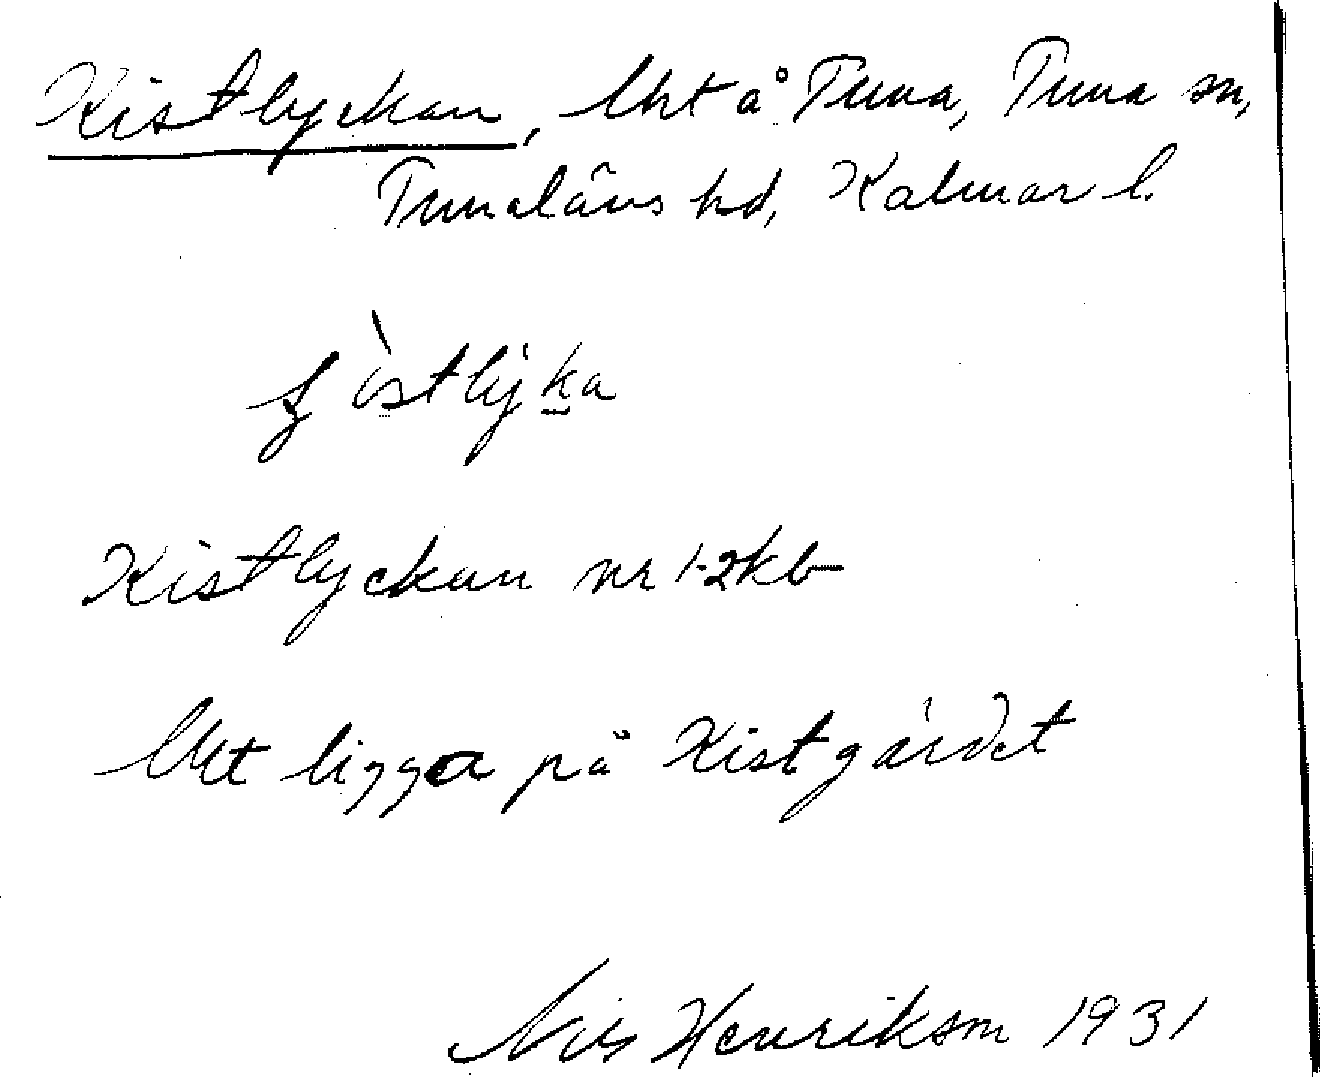 Kistlyckan, lht å Tuna, Tuna sn,
Tunaläns hd, Kalmar l.
Kistlyckan nr 1-2 kb
lht ligga på Kistgärdet
Nils Henrikson 1931